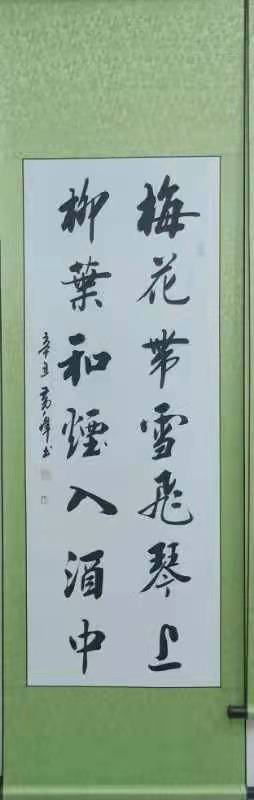 梅花帶雪飛琴上
柳葉和煙入酒中
辛丑 書